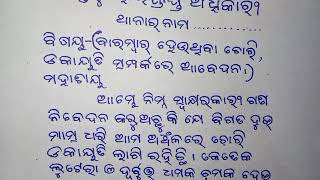 ଥାନାର ନାମ
ବିଷୟ-(ବାରମ୍ବାର ହେଉଥିବା ଚୋରି,
ଡକାୟତି ସମ୍ପର୍କରେ ଆବେଦନ।)
ମହାଶୟ
ଆମ୍ଭେ ନିମ୍ନ ସ୍ୱାକ୍ଷରକାରୀ ଗଣ
ନିବେଦନ କରୁଅଛୁ କି ଯେ ବିଗତ ଦୁଇ
ମାସ ଧରି ଆମ ଅଞ୍ଚଳରେ ଚୋରି
ଡକାୟତି ଲାଗି ରହିଛି । କେତେକ
ଲୁଟେରା ଓ ଦୁର୍ବୃତ୍ତ ଧମକ ଚମକ ଦେଇ